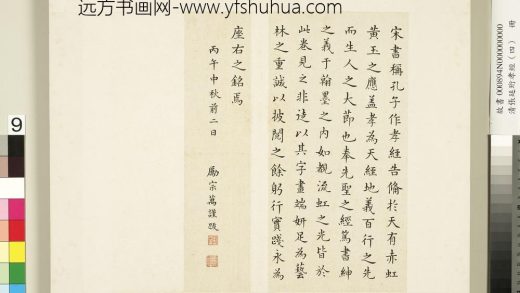 远方书画网-www.yfshuhua.com
宋書稱孔子作孝經告備於天有赤虹
黄玉之應蓋孝為天經地義百行之先
而生人之大節也奉先聖之經篤書紳
之義于翰墨之内如覩流虹之光皆於
此卷見之非徒以其字畫端妍足為藝
林之重誠以披閲之餘躬行實踐永為
座右之銘焉
丙午中秋前二日
勵宗萬謹跋
故書 000894N000000000
清張廷玿孝經（四） 冊
9